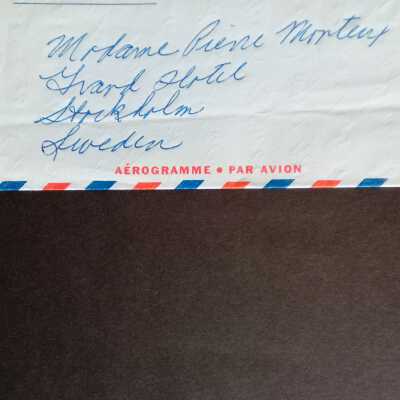 Madame Pierre Monteux
Grand Hotel
Stockholm
Sweden
AÉROGRAMME • PAR AVION